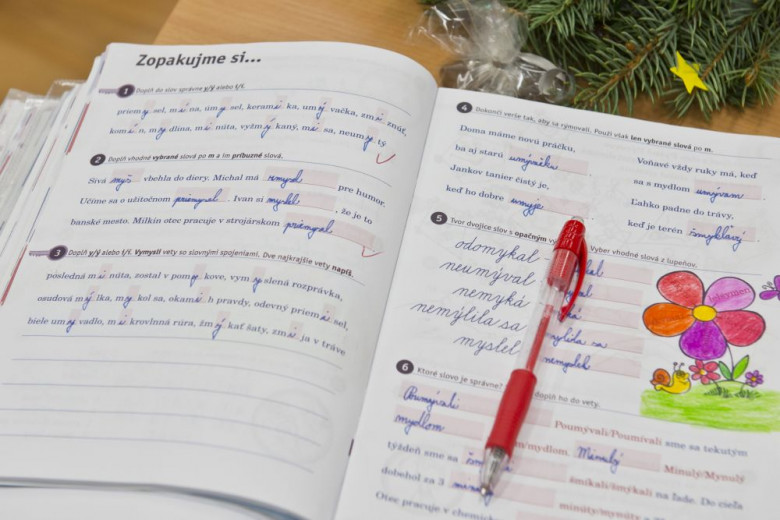 Zopakujme si...
1 Doplň do slov správne y/ý alebo i/í.
priemysel, mína, úmysel, keramika, umývačka, zmiznúť,
komín, mydlina, minúta, vyžmýkaný, misa, neumytý
2 Doplň vhodné vybrané slová po m a im príbuzné slová.
Sivá myš vbehla do diery. Michal má zmysel pre humor.
Učíme sa o užitočnom priemysel. Ivan si myslel, že je to
banské mesto. Miškin otec pracuje v strojárskom priemysel.
3 Doplň y/ý alebo i/í. Vymysli vety so slovnými spojeniami. Dve najkrajšie vety napíš.
posledná minúta, zostal v pomykove, vymyslená rozprávka,
osudová mýlka, mykol sa, okamih pravdy, odevný priemysel,
biele umývadlo, mikrovlnná rúra, žmýkať šaty, zmija v tráve
4 Dokonči verše tak, aby sa rýmovali. Použi však len vybrané slová po m.
Doma máme novú práčku,
ba aj starú umývačku.
Jankov tanier čistý je,
keď ho dobre umyje.
Voňavé vždy ruky má, keď
sa s mydlom umývam.
Ľahko padne do trávy,
keď je terén šmykľavý.
5 Tvor dvojice slov s opačným Vyber vhodné slová z lupeňov.
odomykal
neumýval
nemyká
nemýlila sa mýlila sa
myslel nemyslel
6 Ktoré slovo je správne? doplň ho do vety.
Poumývali Poumývali/Poumivali sme sa tekutým
mydlom m/mydlom. Minulý Minulý/Mynulý
týždeň sme sa šmikali/šmýkali na ľade. Do cieľa
dobehol za 3 minúty/mynúty
Otec pracuje v chemickom